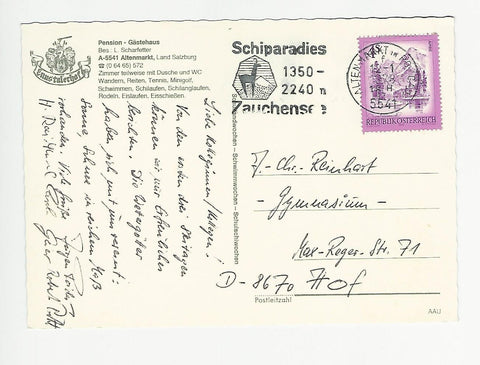 Ennstalerhof
Pension - Gästehaus
Bes.: L. Scharfetter
A-5541 Altenmarkt, Land Salzburg
☎ (0 64 65) 572
Zimmer teilweise mit Dusche und WC
Wandern, Reiten, Tennis, Minigolf,
Schwimmen, Schilaufen, Schilanglaufen,
Rodeln, Eislaufen, Eisschießen.
Liebe Kolleginnen/Kollegen!
Von den ersten drei Skitagen
können wir nur Erfreuliches
berichten. Die
haben sich mit uns
Sonne, Schnee in reichem Maß
vorhanden. Viele Grüße
Schiparadies
1350-
2240 m
Zauchensee
ALTENMARKT IM
5541
REPUBLIK ÖSTERREICH
- Schwimmwochen - Schulschiwochen
J.-Chr.-Reinhart
- Gymnasium -
Max-Reger-Str. 71
D-8670 Hof
Postleitzahl
AAU